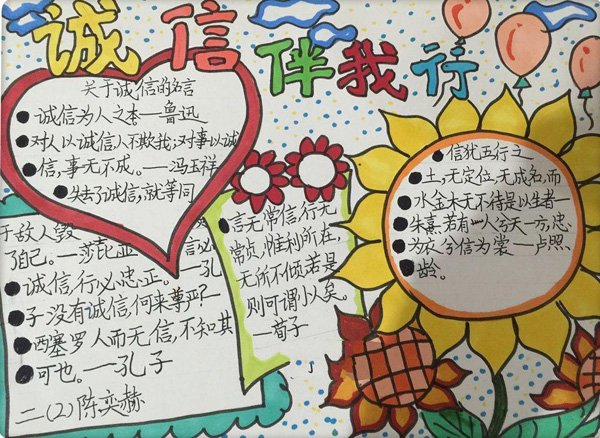 诚信伴我行
关于诚信的名言
诚信为人之本——鲁迅
对人以诚信,人不欺我;对事以诚
信,事无不成。——冯玉祥
失去了诚信,就等同
于敌人毁
了自己。——莎士比亚
言必
诚信,行必忠正。——孔
子没有诚信,何来尊严?—
西塞罗人而无信,不知其
可也。——孔子
二(2)陈奕赫
言无常信,行无
常贞,惟利所在,
无所不倾若是
则可谓小人矣。
—荀子
信犹五行之
土,无定位,无成名,而
水金木无不待是以生者—
朱熹.若有一人兮天一方,忠
为衣兮信为裳—卢照
龄。